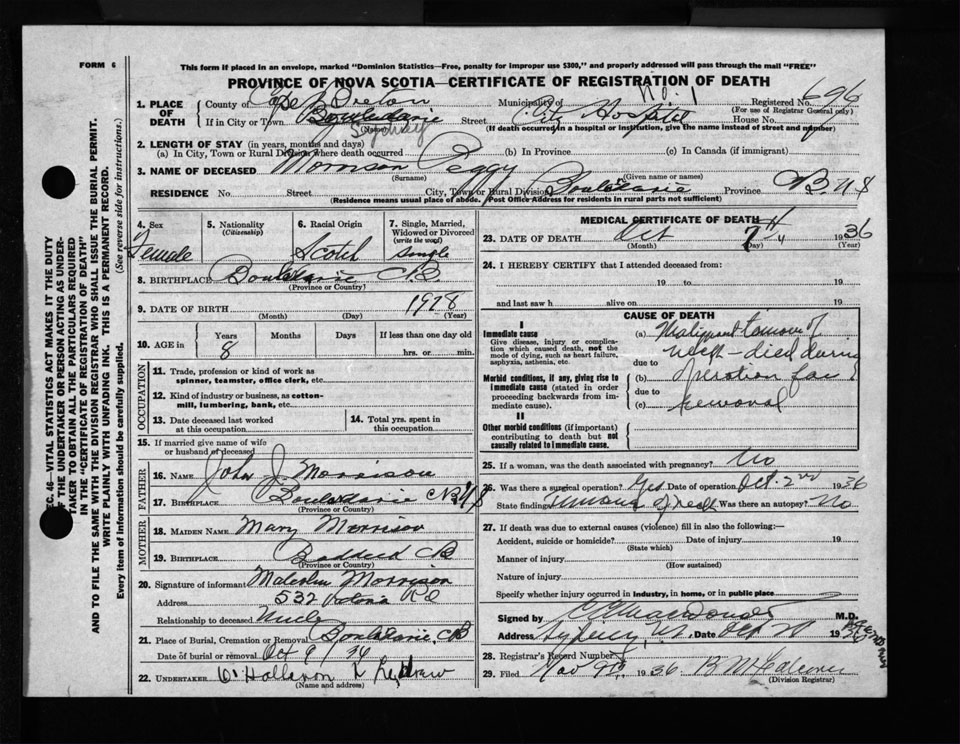 FORM 6
This form if placed in an envelope, marked "Dominion Statistics—Free, penalty for improper use $300," and properly addressed will pass through the mail "FREE"
PROVINCE OF NOVA SCOTIA—CERTIFICATE OF REGISTRATION OF DEATH
1. PLACE OF DEATH
County of Cape Breton Municipality of No. 1 Registered No. 696
(For use of Registrar General only)
If in City or Town Boularderie Sydney Street City Hospital House No.
(Name) (If death occurred in a hospital or institution, give the name instead of street and number)
2. LENGTH OF STAY (in years, months and days)
(a) In City, Town or Rural Division where death occurred (b) In Province (c) In Canada (if immigrant)
3. NAME OF DECEASED Morrison Peggy
(Surname) (Given name or names)
RESIDENCE No. Street City, Town or Rural Division Boularderie Province C B. N S
(Residence means usual place of abode. Post Office Address for residents in rural parts not sufficient)
4. Sex
Female
5. Nationality
(Citizenship)
6. Racial Origin
Scotch
7. Single, Married, Widowed or Divorced
(write the word)
Single
8. BIRTHPLACE Boularderie C.B.
(Province or Country)
9. DATE OF BIRTH 1928
(Month) (Day) (Year)
10. AGE in
Years Months Days If less than one day old
8 hrs. or min.
OCCUPATION
11. Trade, profession or kind of work as
spinner, teamster, office clerk, etc.
12. Kind of industry or business, as cotton-
mill, lumbering, bank, etc.
13. Date deceased last worked
at this occupation
14. Total yrs. spent in
this occupation
15. If married give name of wife
or husband of deceased
FATHER
16. NAME John J. Morrison
17. BIRTHPLACE Boularderie C B N S
(Province or Country)
MOTHER
18. MAIDEN NAME Mary Morrison
19. BIRTHPLACE Baddeck C B
(Province or Country)
20. Signature of informant Malcolm Morrison
Address 532 Rd
Relationship to deceased Uncle
21. Place of Burial, Cremation or Removal Boularderie, C B
Date of burial or removal Oct 9 / 36
22. UNDERTAKER
(Name and address)
MEDICAL CERTIFICATE OF DEATH
23. DATE OF DEATH Oct 7th 1936
(Month) (Day) (Year)
24. I HEREBY CERTIFY that I attended deceased from:
19 to 19
and last saw h alive on 19
CAUSE OF DEATH
I
Immediate cause
Give disease, injury or complication which caused death, not the mode of dying, such as heart failure, asphyxia, asthenia, etc.
Morbid conditions, if any, giving rise to immediate cause (stated in order proceeding backwards from immediate cause).
II
Other morbid conditions (if important) contributing to death but not causally related to immediate cause.
(a) Malignant tumour of
due to neck - died during
(b) operation for
due to
(c) removal
25. If a woman, was the death associated with pregnancy? No
26. Was there a surgical operation? Yes Date of operation Oct. 2nd 1936
State finding Tumour of neck Was there an autopsy? No
27. If death was due to external causes (violence) fill in also the following:—
Accident, suicide or homicide? Date of injury 19
(State which)
Manner of injury
(How sustained)
Nature of injury
Specify whether injury occurred in industry, in home, or in public place
Signed by M.D.
Address Sydney N.S. Date Oct 19
28. Registrar's Record Number
29. Filed Nov 9th 1936
(Division Registrar)
SEC. 46—VITAL STATISTICS ACT MAKES IT THE DUTY
OF THE UNDERTAKER OR PERSON ACTING AS UNDER-
TAKER TO OBTAIN ALL THE PARTICULARS REQUIRED
IN THE "CERTIFICATE OF REGISTRATION OF DEATH"
AND TO FILE THE SAME WITH THE DIVISION REGISTRAR WHO SHALL ISSUE THE BURIAL PERMIT.
WRITE PLAINLY WITH UNFADING INK. THIS IS A PERMANENT RECORD.
Every item of information should be carefully supplied. (See reverse side for instructions.)